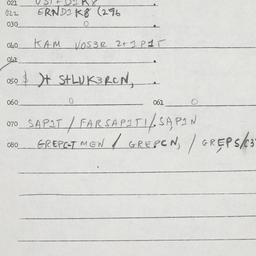 021
022 ERNDI K8 (296
030 0
040 KAM VOS3R 2+IPIT
042
050 $ )+ S+LUK3RCN,
060 0 061 0
070 SAPIT / FARSAPITI/. SAPIN
080 GREPC-T MEN / GREPCN, / GREPS/C3